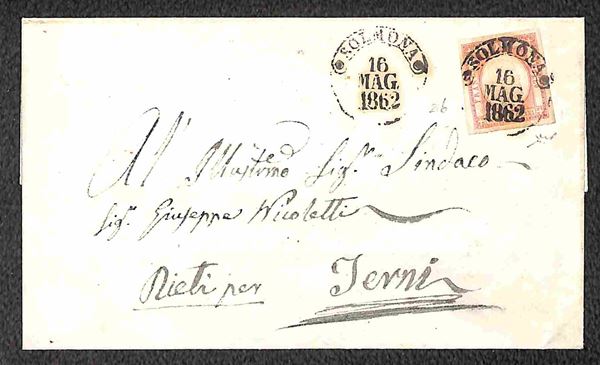 SOLMONA
16
MAG
1862
SOLMONA
16
MAG
1862
26
All' Illustrmo Sigr. Sindaco
Sigr. Giuseppe Nicoletti
Rieti per Terni